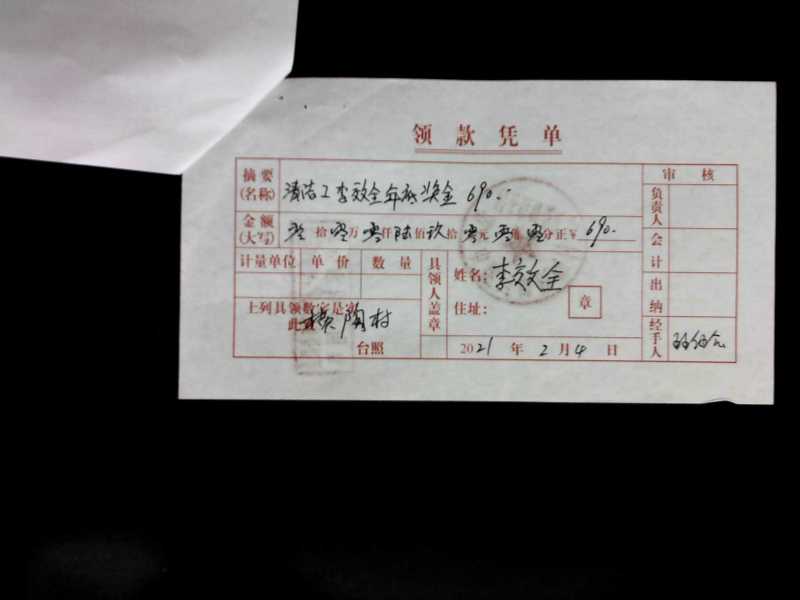 领款凭单
摘要(名称) 清洁工李效全年底奖金 690.- 审核
金额(大写) 零拾零万零仟陆佰玖拾零元零角零分正¥ 690.- 负责人
计量单位 单价 数量 具领人盖章 姓名: 李效全 会计
住址: 章 出纳
上列具领数字是实
此 陶村
台照 2021年2月4日 经手人